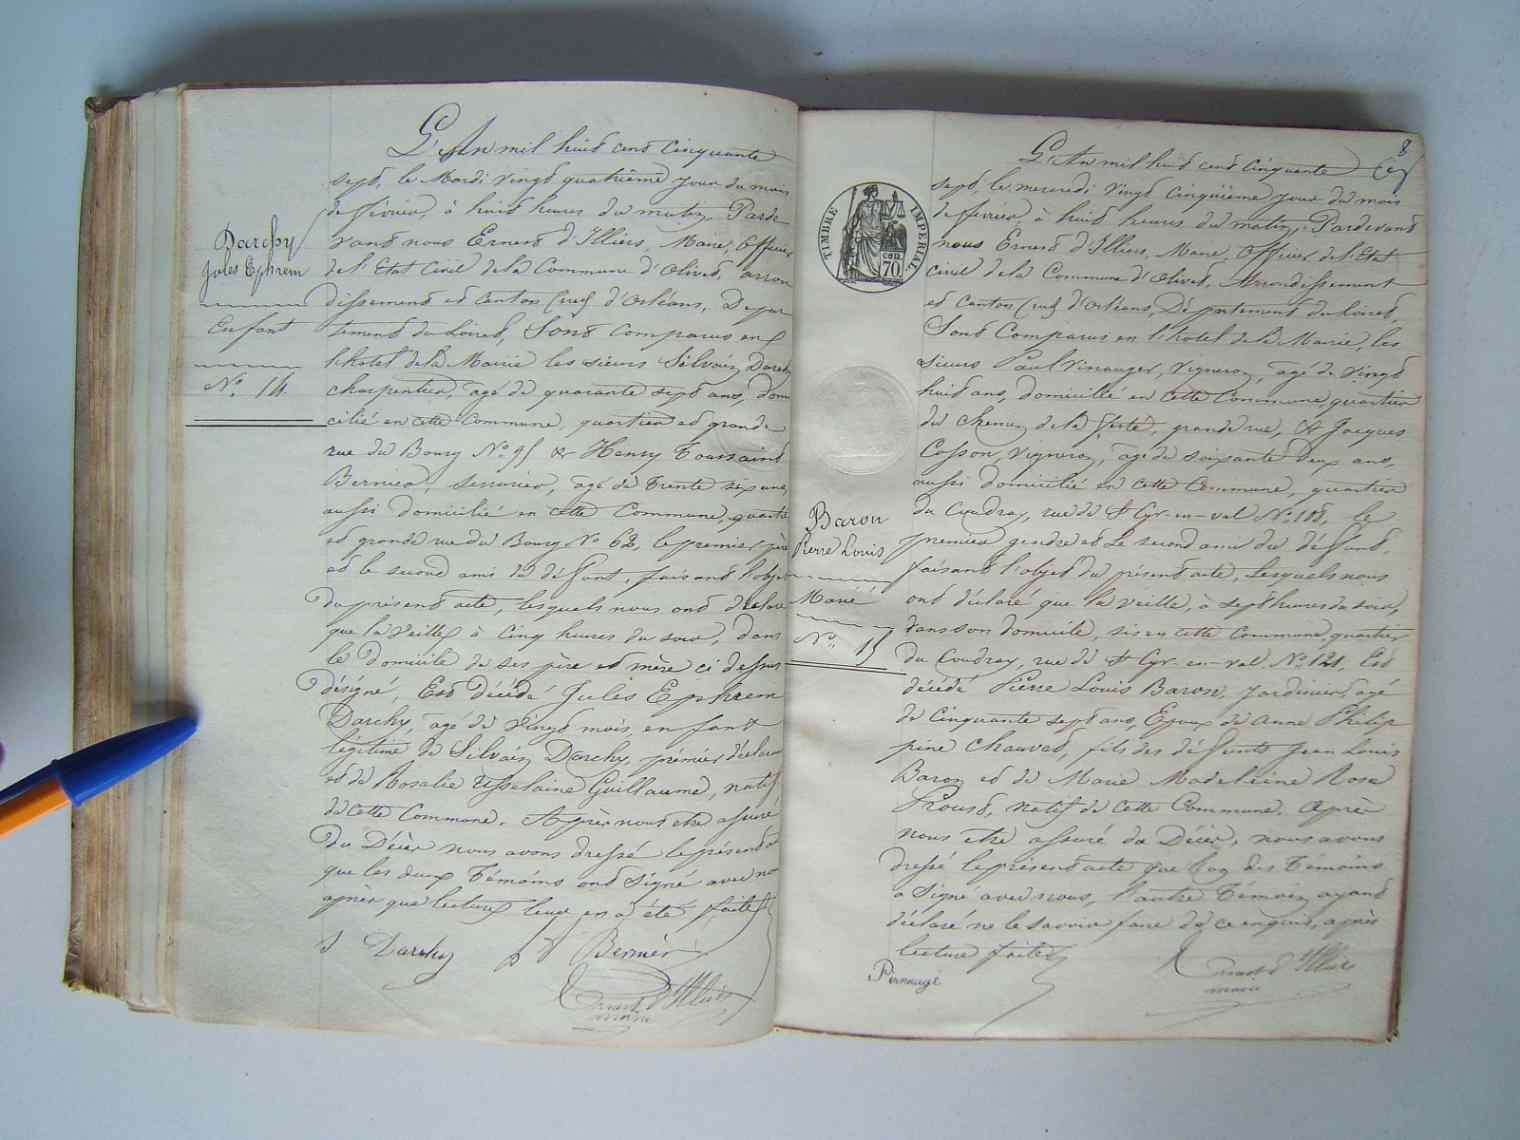 Darchy
Jules Ephrem
Enfant
No. 14
L'An mil huit cent cinquante
sept, le Mardi vingt quatrième jour du mois
de février, à huit heures du matin, Parde
vant nous Ernest d'Illiers, Maire, Officier
de l'Etat civil de la Commune d'Olivet, arron
dissement et canton (sud) d'Orléans, Dépar
tement du Loiret, Sont comparus en
l'hotel de la Mairie les sieurs Silvain Darchy
charpentier, agé de quarante sept ans, domi
cilié en cette Commune, quartier et grande
rue du Bourg No 95 & Henry Toussaint
Bernier, serrurier, agé de trente six ans,
aussi domicilié en cette Commune, quartier
et grande rue du Bourg No 62, le premier père
et le second ami du défunt, faisant l'objet
du présent acte, lesquels nous ont déclaré
que la veille à cinq heures du soir, dans
le domicile de ses père et mère ci dessus
désigné, Est décédé Jules Ephrem
Darchy, agé de vingt mois, enfant
légitime de Silvain Darchy, prémier déclarant
et de Rosalie Guillaume, natif
de cette Commune. Après nous etre assuré
du Décès nous avons dressé le présent
que les deux témoins ont signé avec nous
après que lecture leur en a été faite
S Darchy Bernier
Ernest d'Illiers
maire
8
TIMBRE IMPERIAL
70
Baron
Pierre Louis
Marié
No. 15
L'An mil huit cent cinquante
sept, le mercredi vingt cinquième jour du mois
de février, à huit heures du matin, Pardevant
nous Ernest d'Illiers, Maire, Officier de l'Etat
civil de la Commune d'Olivet, Arrondissement
et canton (sud) d'Orléans, Département du Loiret,
Sont Comparus en l'hotel de la Mairie, les
sieurs Paul, vigneron, agé de vingt
huit ans, domicilié en cette Commune, quartier
du chemin de la ferté, grande rue, & Jacques
Cosson, vigneron, agé de soixante deux ans,
aussi domicilié en cette Commune, quartier
du Coudray, rue de St Cyr-en-val No. 108, le
premier gendre et le second ami du défunt.
faisant l'objet du présent acte, Lesquels nous
ont déclaré que la veille, à sept heures du soir,
dans son domicile, sis en cette Commune, quartier
du Coudray, rue de St Cyr-en-val No. 121, Est
décédé Pierre Louis Baron, jardinier, agé
de cinquante sept ans, Epoux de Anne Philip
pine Chauvet, fils des défunts Jean Louis
Baron et de Marie Madeleine Rose
Proust, natif de cette Commune. Après
nous etre assuré du Décès, nous avons
dressé le présent acte que l'un des témoins
a signé avec nous, l'autre témoin ayant
déclaré ne le savoir faire de ce enquis, après
lecture faite
Ernest d'Illiers
maire